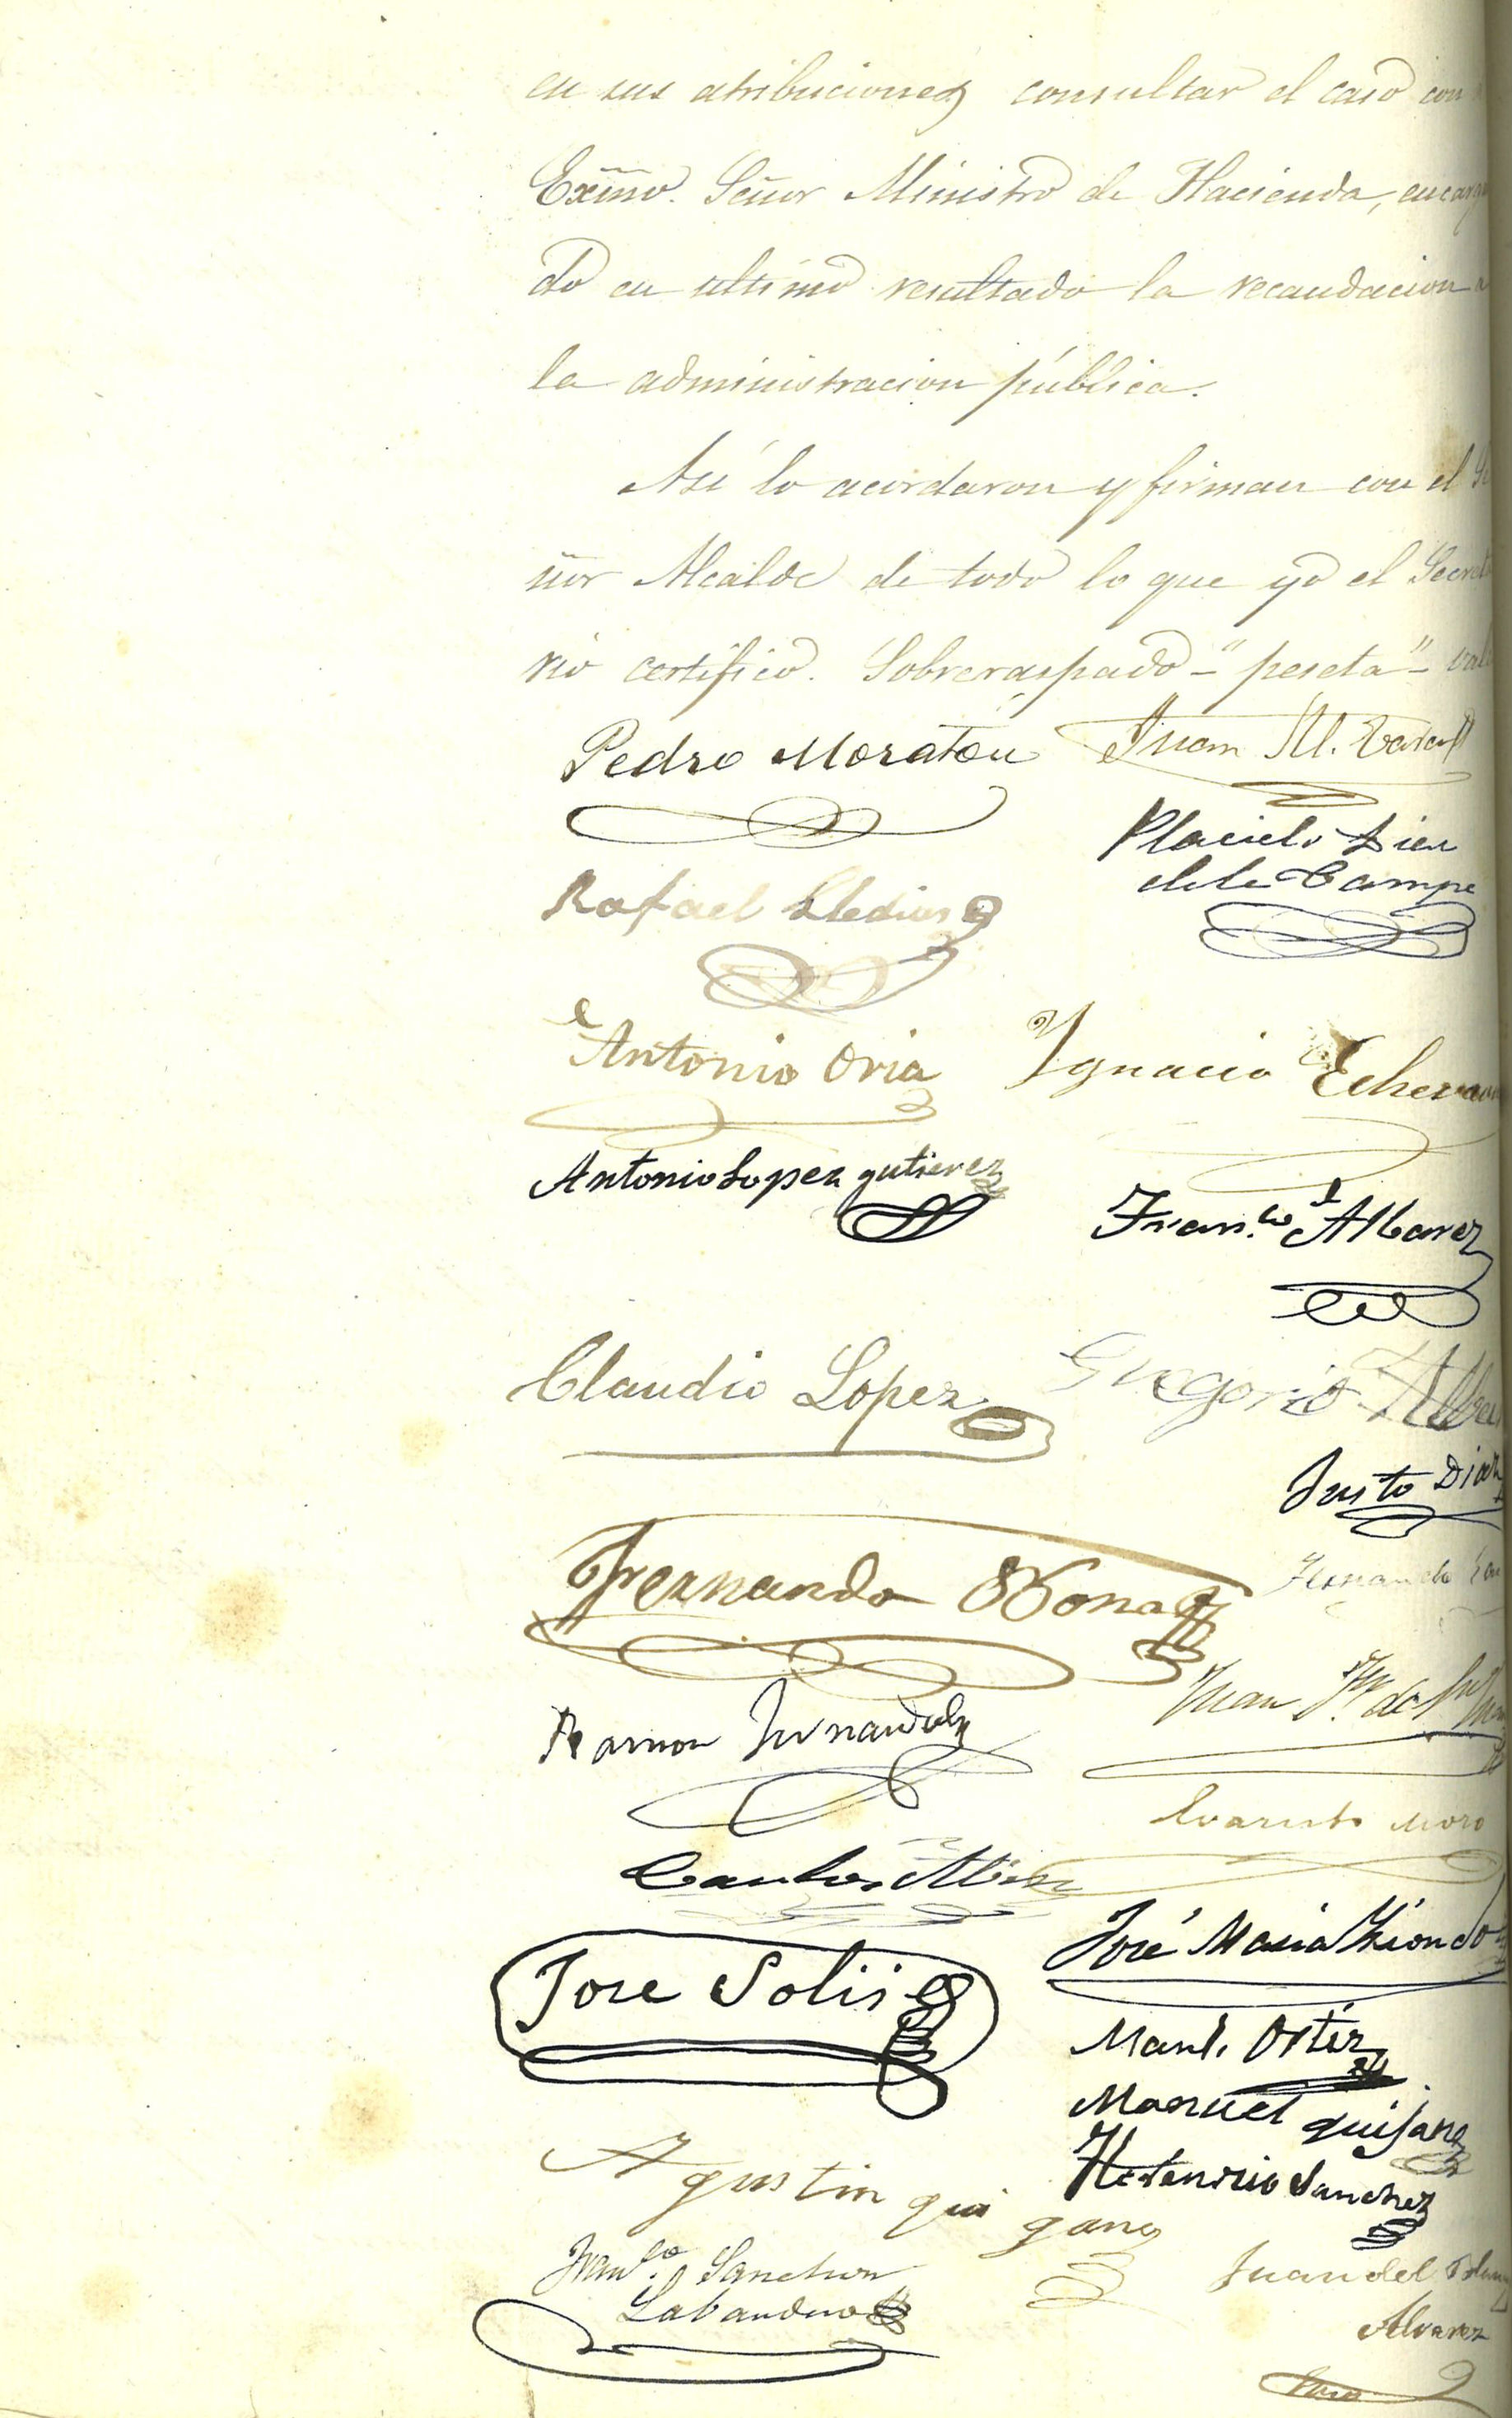 en sus atribuciones consultar el caso con
Exmo. Señor Ministro de Hacienda, encarga
do en ultimo resultado la recaudacion a
la administracion pública.
Asi lo acordaron y firman con el Se
ñor Alcalde de todo lo que yo el Secreta
rio certifico. Sobreraspado - "peseta" - vale
Pedro Moraton Juan M.
Placido
de la Campa
Rafael
Antonio Oria Ygnacio Echevar
Antonio Lopez gutierez
Fran.co Albarez
Claudio Lopez Gregorio
Justo Diaz
Fernando
Fernando
Ramon Fernandez Juan
Evaristo Moro
Carlos
José Maria
Jose Solis
Manl. Ortiz
Manuel quijano
Sanchez
Agustin qui
gano
Franco. Sanchez Juan del
Labandero
Alvarez